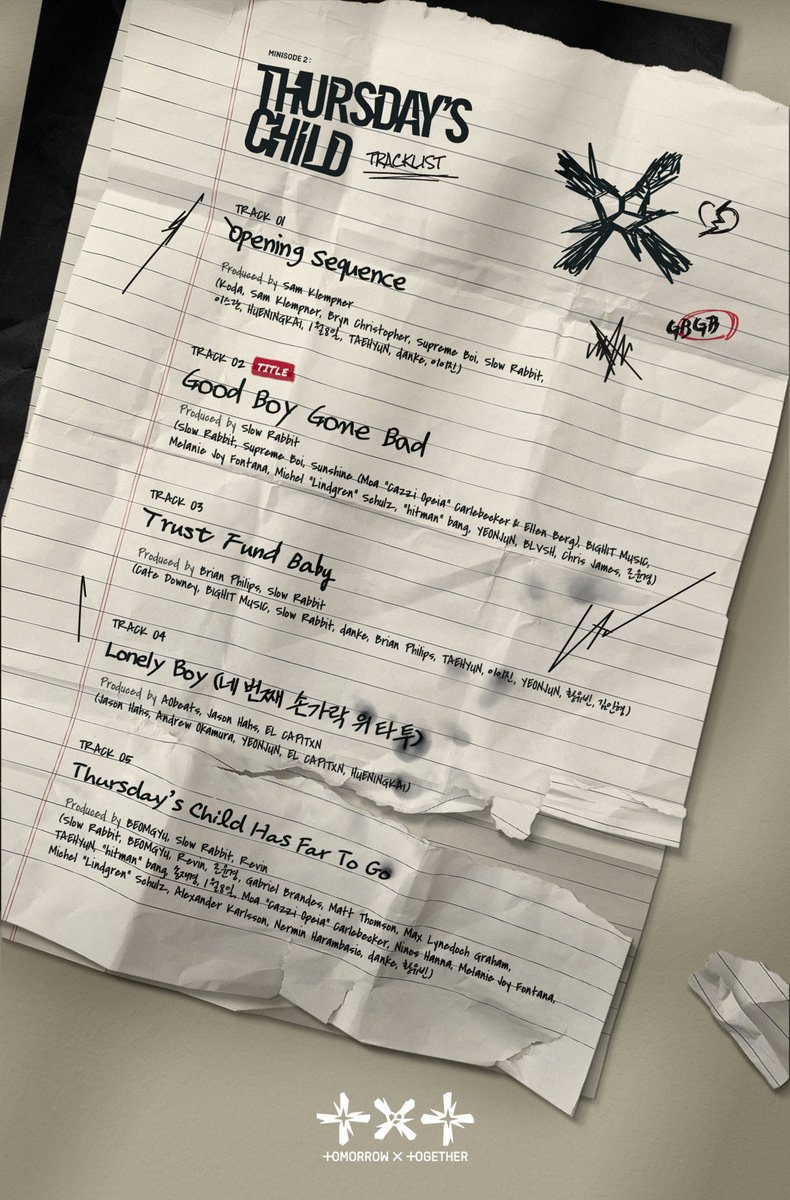 MINISODE 2 :
THURSDAY'S
CHILD
TRACKLIST
GBGB
TRACK 01
Opening Sequence
Produced by Sam Klempner
(Koda, Sam Klempner, Bryn Christopher, Supreme Boi, Slow Rabbit,
이스란, HUENINGKAI, 1월8일, TAEHYUN, danke, 이이진)
TRACK 02 TITLE
Good Boy Gone Bad
Produced by Slow Rabbit
(Slow Rabbit, Supreme Boi, Sunshine (Moa "Cazzi Opeia" Carlebecker & Ellen Berg), BIGHIT MUSIC,
Melanie Joy Fontana, Michel "Lindgren" Schulz, "hitman" bang, YEONJUN, BLVSH, Chris James, 로운경)
TRACK 03
Trust Fund Baby
Produced by Brian Philips, Slow Rabbit
(Cate Downey, BIGHIT MUSIC, Slow Rabbit, danke, Brian Philips, TAEHYUN, 이이진, YEONJUN, 황유빈, 김인형)
TRACK 04
Lonely Boy (네 번째 손가락 위 타투)
Produced by AObeats, Jason Hahs, EL CAPITXN
(Jason Hahs, Andrew Okamura, YEONJUN, EL CAPITXN, HUENINGKAI)
TRACK 05
Thursday's Child Has Far To Go
Produced by BEOMGYU, Slow Rabbit, Revin
(Slow Rabbit, BEOMGYU, Revin, Gabriel Brandes, Matt Thomson, Max Lynedoch Graham,
TAEHYUN, "hitman" bang, 1월8일, Moa "Cazzi Opeia" Carlebecker, Ninos Hanna, Melanie Joy Fontana,
Michel "Lindgren" Schulz, Alexander Karlsson, Nermin Harambasic, danke, 황유빈)
TOMORROW X TOGETHER